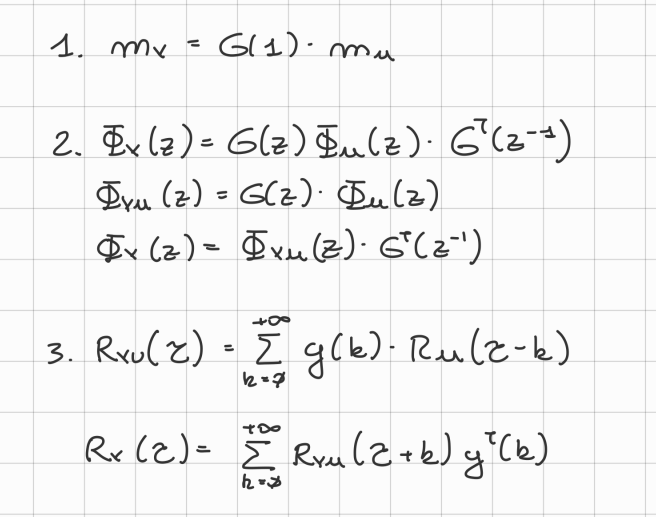 1. mₓ = G(1) · mᵤ
2. Φₓ(z) = G(z) Φᵤ(z) · Gᵀ(z⁻¹)
Φₓᵤ(z) = G(z) · Φᵤ(z)
Φₓ(z) = Φₓᵤ(z) · Gᵀ(z⁻¹)
3. Rₓᵤ(τ) = ∑_{k=0}^{+∞} g(k) · Rᵤ(τ-k)
Rₓ(τ) = ∑_{k=0}^{+∞} Rₓᵤ(τ+k) gᵀ(k)